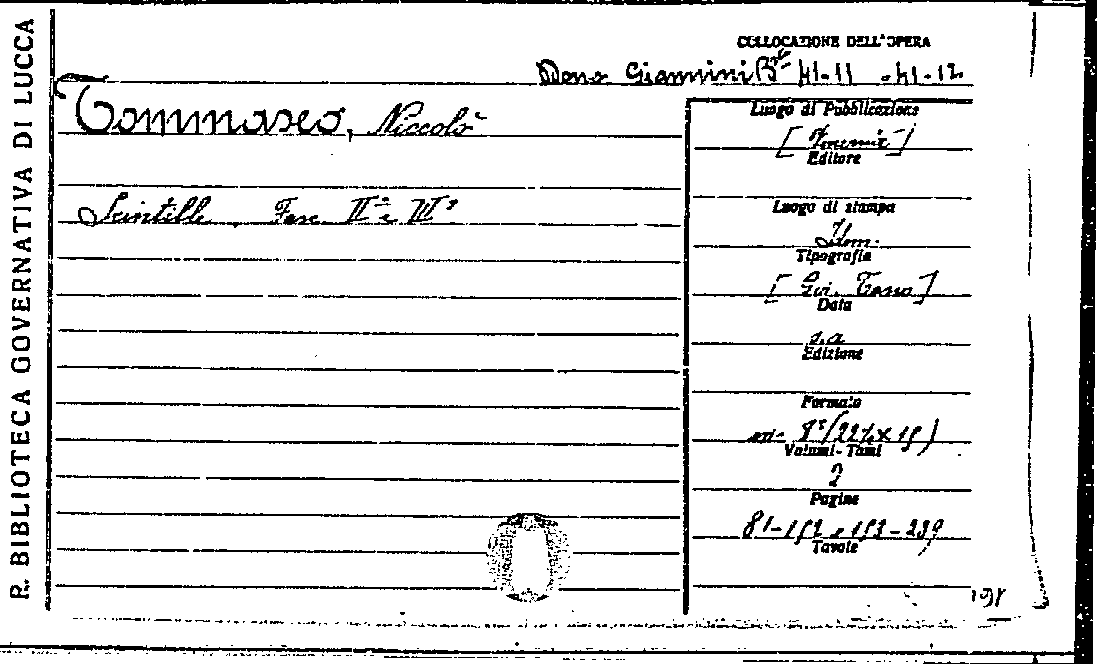 R. BIBLIOTECA GOVERNATIVA DI LUCCA
COLLOCAZIONE DELL'OPERA
Dono Giannini Bta 41-11 - 41-12
Tommaseo, Niccolò
Luogo di Pubblicazione
[Venezia]
Editore
Scintille, Fasc. II° e III°
Luogo di stampa
Idem.
Tipografia
[ Tasso]
Data
s.a
Edizione
Formato
8°
Volumi-Tomi
2
Pagine
81-152 e 153-239
Tavole